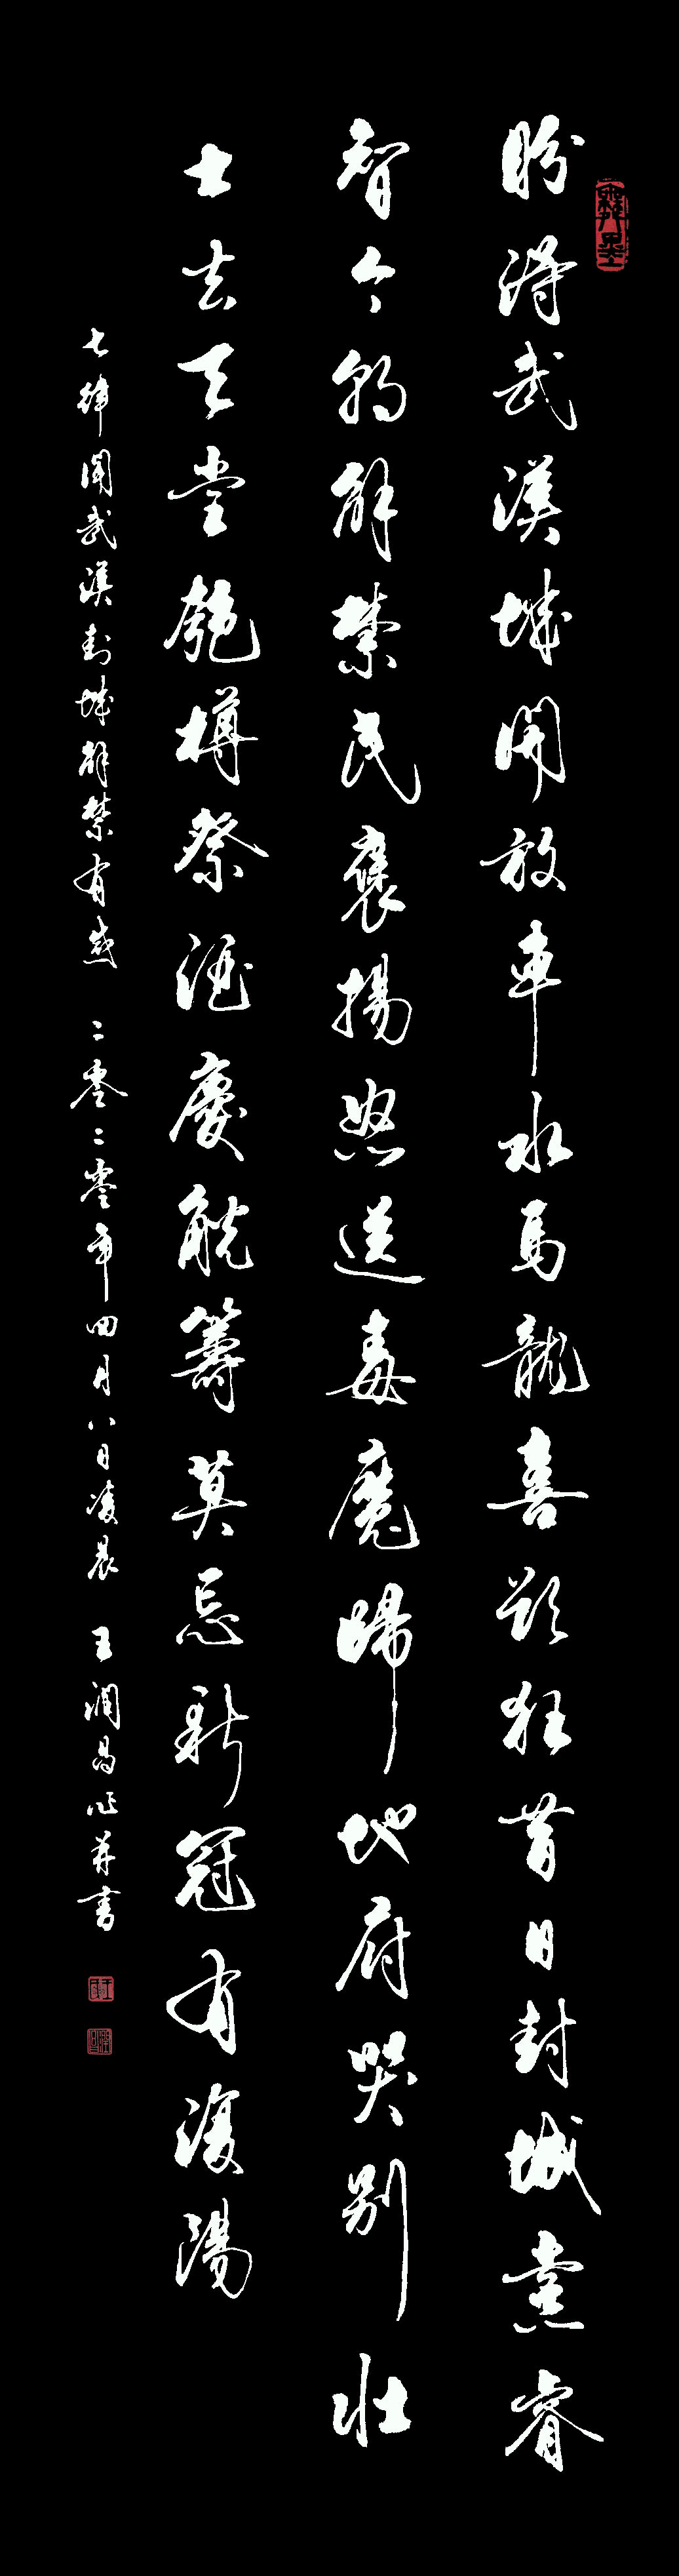 盼得武漢城開放車水馬龍喜欲狂昔日封城黨睿
智今朝解禁民褒揚怒送毒魔歸地府哭別壯
士去天堂匏樽祭酒慶觥籌莫忘新冠有復陽
七律聞武漢封城解禁有感 二零二零年四月八日凌晨 王潤昌作并書